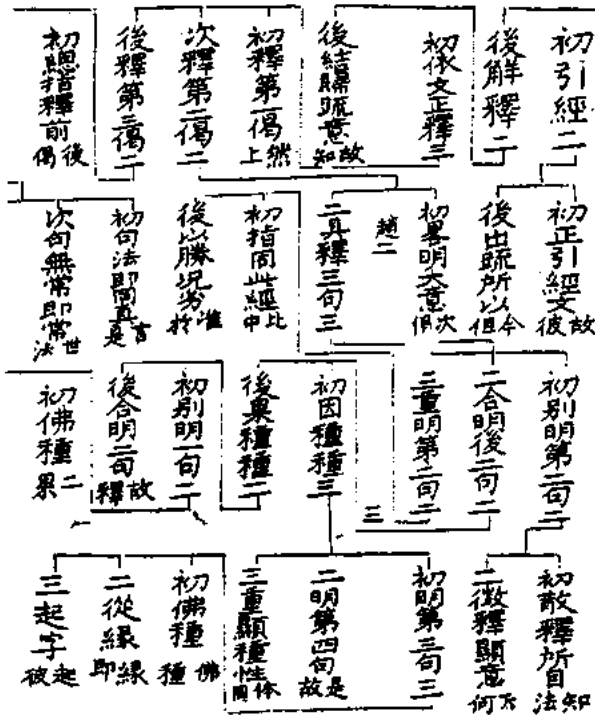 初引經二
後解釋二
初依文正釋三
後結歸疏意故知
初釋第一偈然上
次釋第二偈二
後釋第三偈二
初總指釋前後偈
初正引經文故彼
後出疏所以今但
初畧明大意次偈
趙二
二具釋三句三
初指同此經比中
後以勝況劣唯
初句法即同真言是
次句無常即常世法
初別明第二句二
二合明後二句二
三重明第二句二
三
初因種種三
後果種種二
初別明一句二
後合明二句故釋
初佛種二果
初敘釋所自知法
二徵釋顯意下何
初明第三句三
二明第四句是故
三重顯種性体同
初佛種佛種
二從緣緣即
三起字起彼